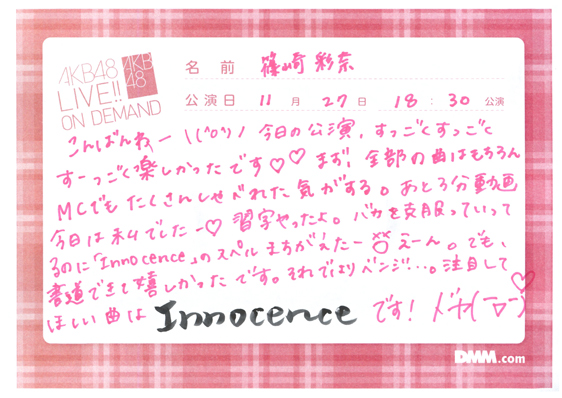 AKB48
LIVE!!
ON DEMAND
AKB
48
名 前 篠崎 彩奈
公演日 11 月 27 日 18 : 30 公演
こんばんわー \(^o^)/ 今日の公演、すっごくすっごく
すーっごく楽しかったです♡♡ まず! 全部の曲はもちろん
MCでもたくさんしゃべれた気がする。あと3分動画
今日は私でしたー♡ 習字やったよ。バカを克服っていって
るのに「Innocence」のスペルまちがえたー えーん。でも、
書道できて嬉しかったです。それではリベンジ…。注目して
ほしい曲は Innocence です!
DMM.com